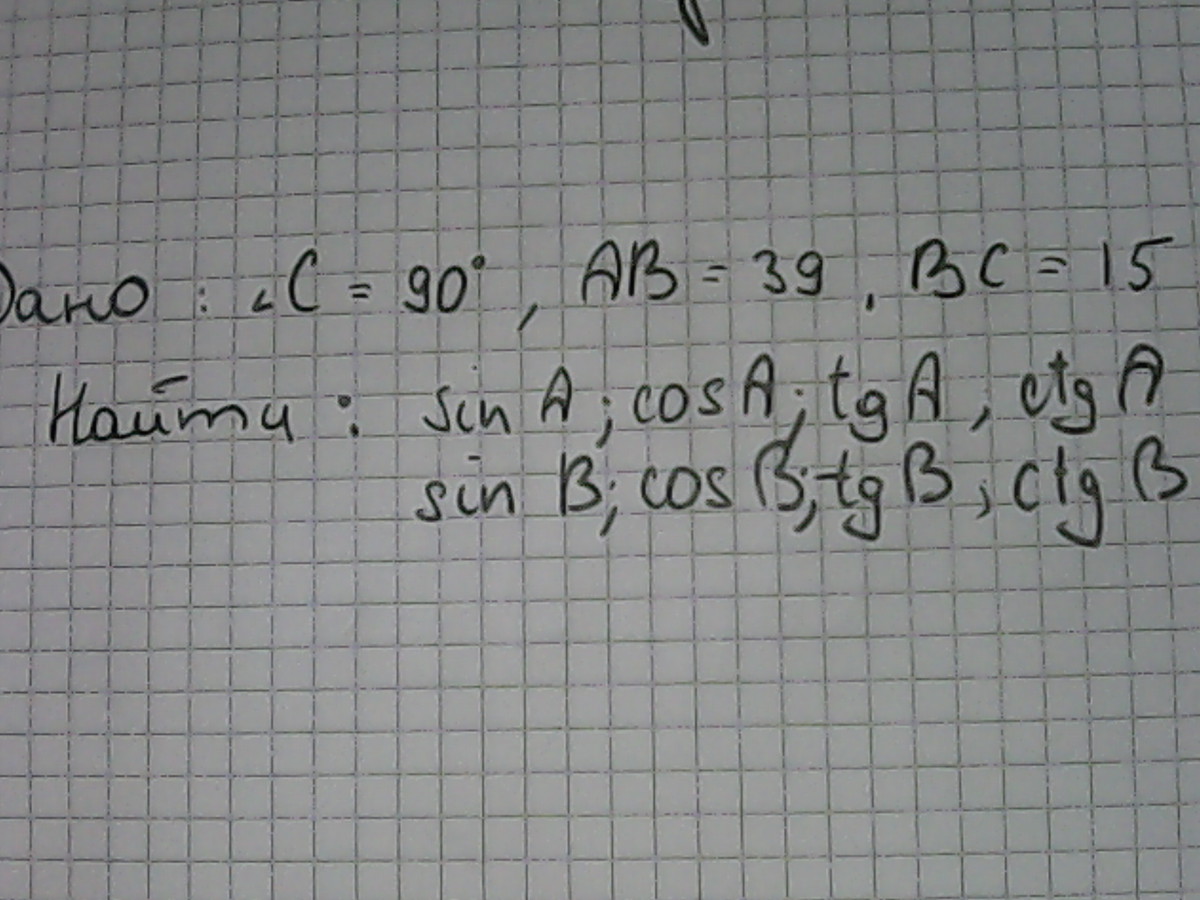 Дано : ∠C = 90°, AB = 39, BC = 15
Найти : sin A; cos A; tg A, ctg A
sin B; cos B; tg B; ctg B